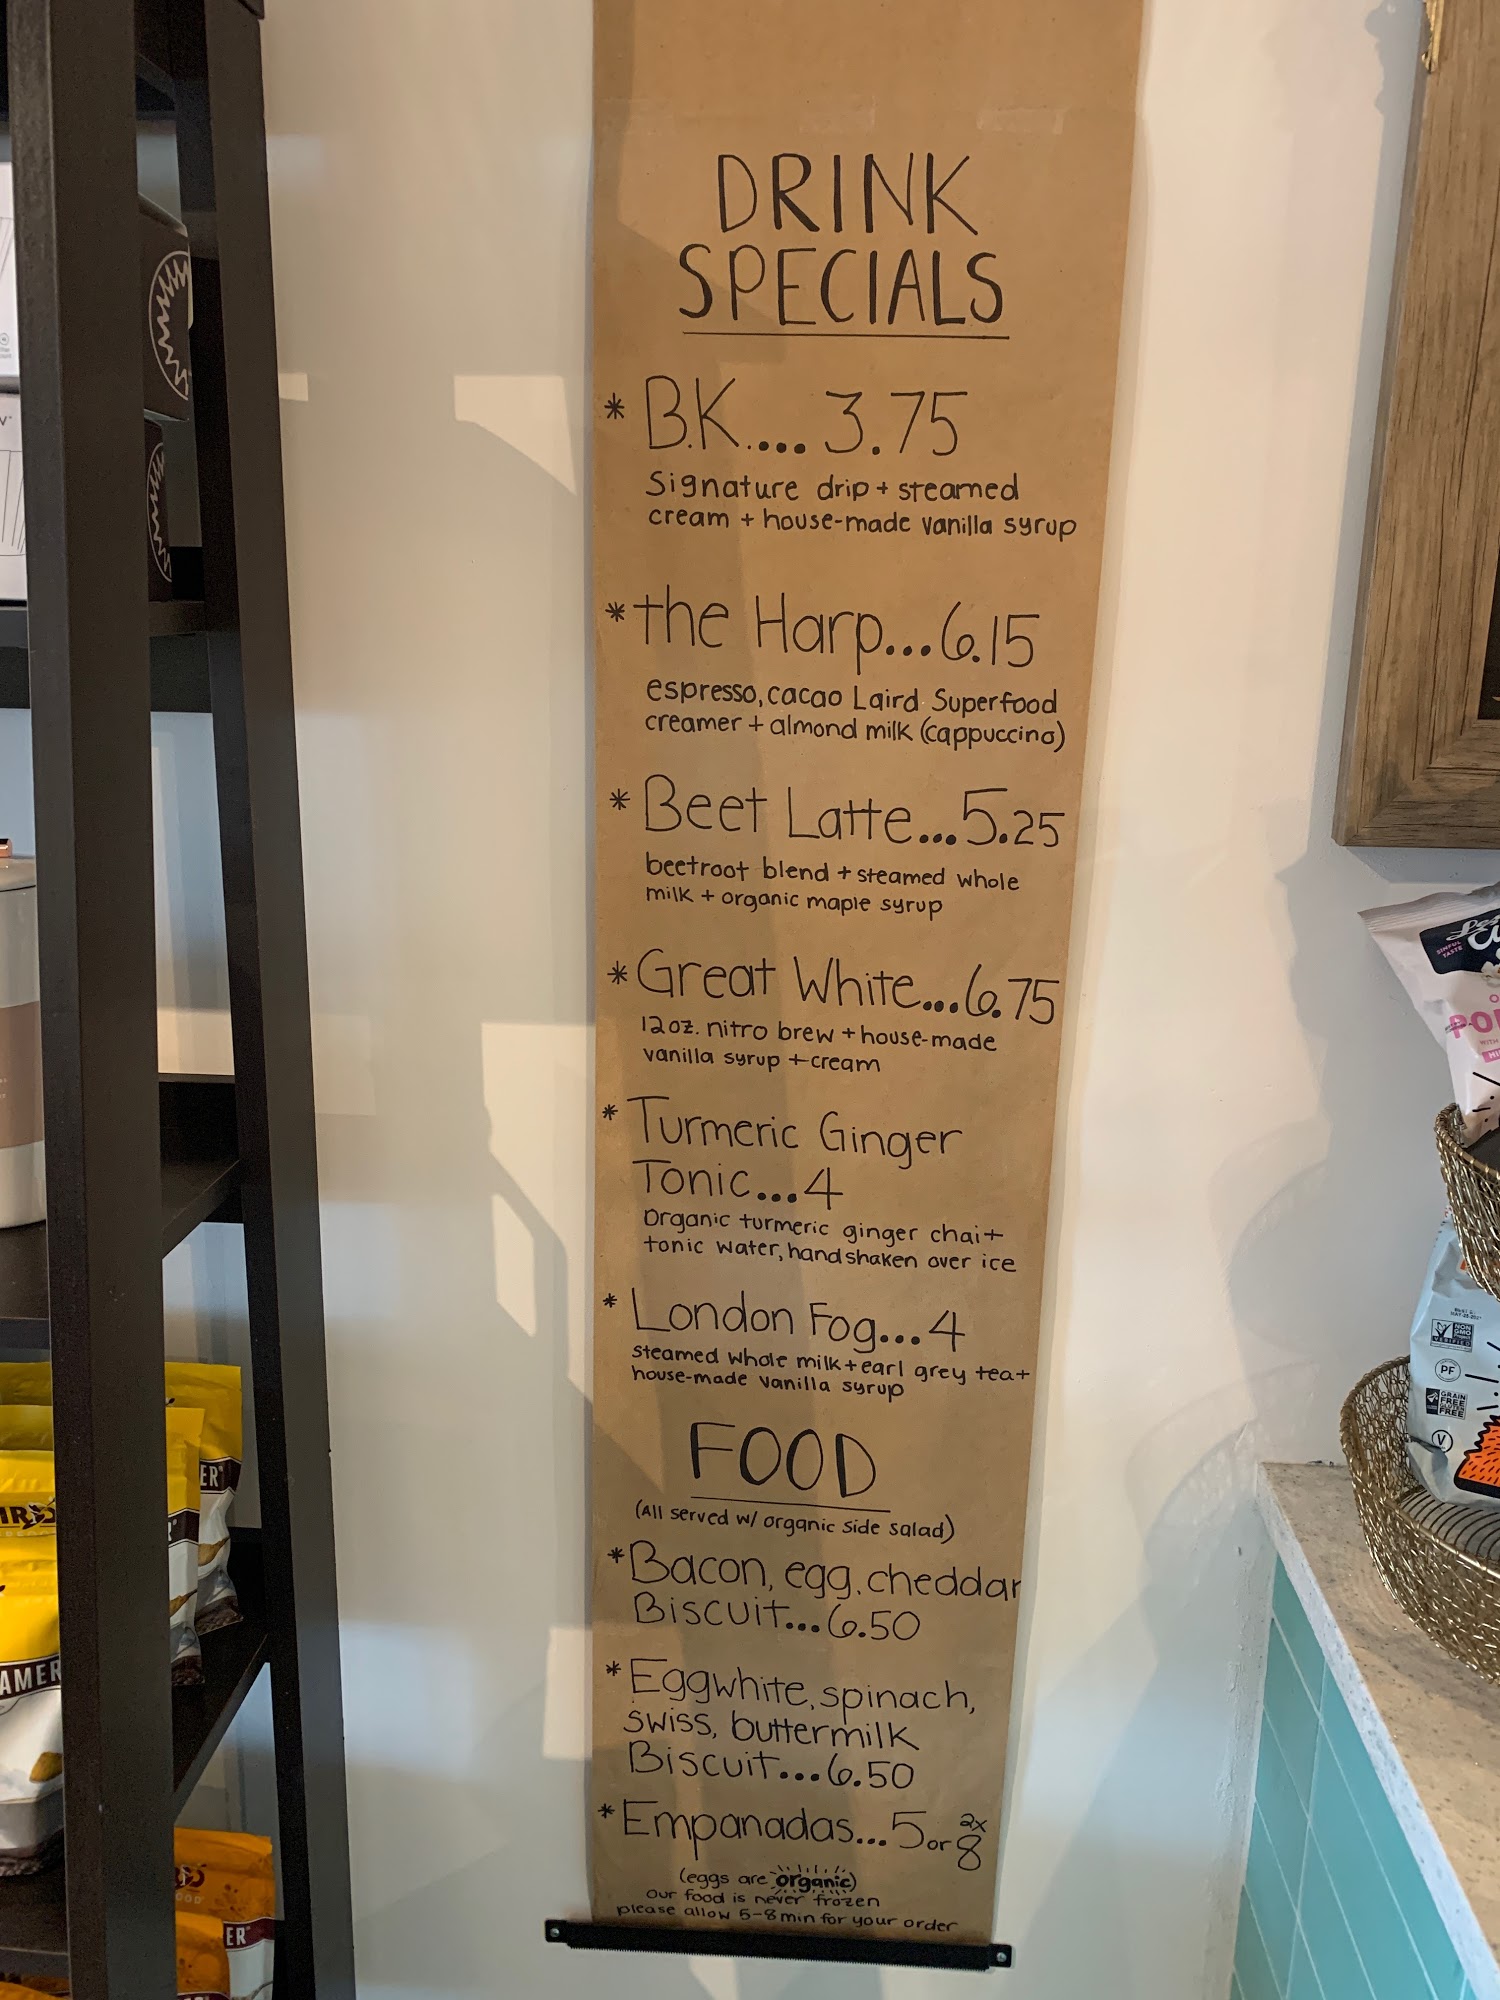 DRINK
SPECIALS
* B.K.... 3.75
Signature drip + steamed
cream + house-made vanilla syrup
* the Harp...6.15
espresso, cacao Laird Superfood
creamer + almond milk (cappuccino)
* Beet Latte...5.25
beetroot blend + steamed whole
milk + organic maple syrup
* Great White...6.75
12oz. nitro brew + house-made
vanilla syrup + cream
* Turmeric Ginger
Tonic...4
Organic turmeric ginger chai +
tonic water, handshaken over ice
* London Fog...4
steamed whole milk + earl grey tea +
house-made vanilla syrup
FOOD
(All served w/ organic side salad)
* Bacon, egg, cheddar
Biscuit...6.50
* Eggwhite, spinach,
swiss, buttermilk
Biscuit...6.50
* Empanadas...5 or 2x 8
(eggs are organic)
our food is never frozen
please allow 5-8 min for your order
SINFUL
TASTE
NON
GMO
VERIFIED
PF
GRAIN
FREE
FREE
V
ER
AMER
ER